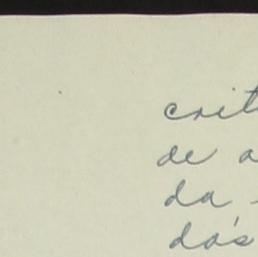 crit
de a
da
dos